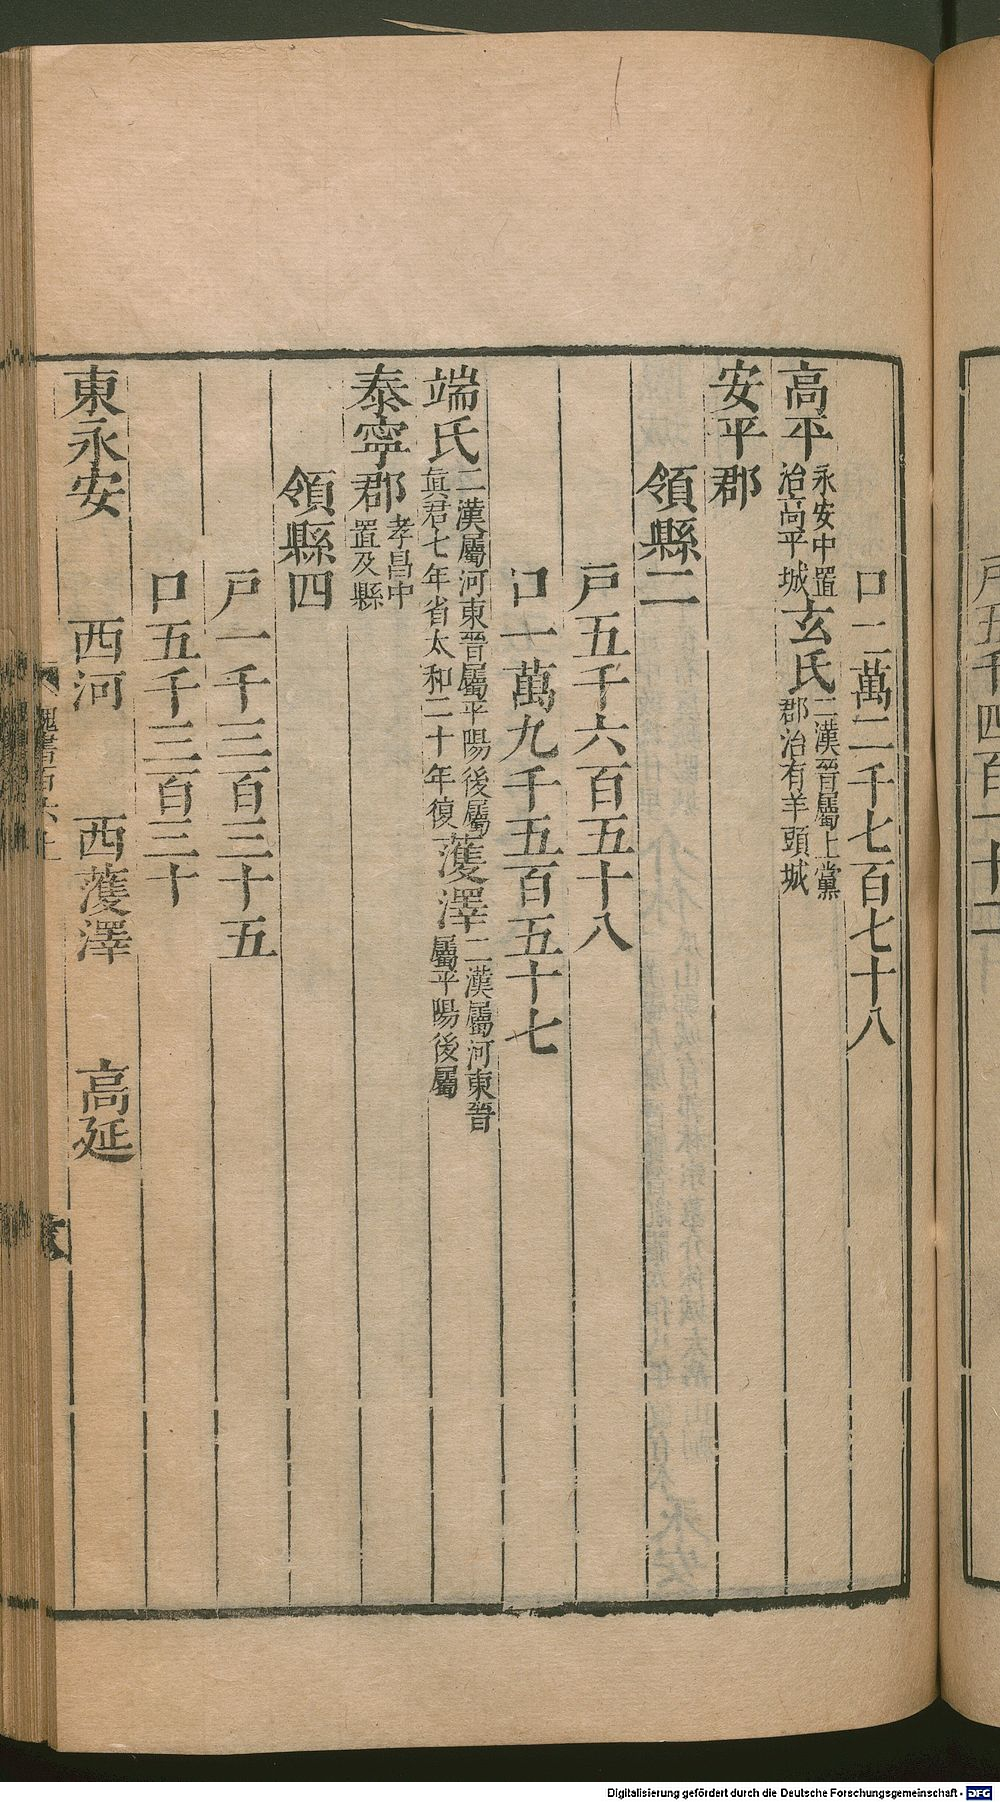 戸五千四百一十二
口二萬二千七百七十八
高平永安中置治高平城玄氏二漢晉屬上黨郡治有羊頭城
安平郡
領縣二
戸五千六百五十八
口一萬九千五百五十七
端氏二漢屬河東晉屬平陽後屬眞君七年省太和二十年復濩澤二漢屬河東晉屬平陽後屬
泰寧郡孝昌中置及縣
領縣四
戸一千三百三十五
口五千三百三十
東永安 西河 西濩澤 高延
魏書百六上
Digitalisierung gefördert durch die Deutsche Forschungsgemeinschaft - DFG